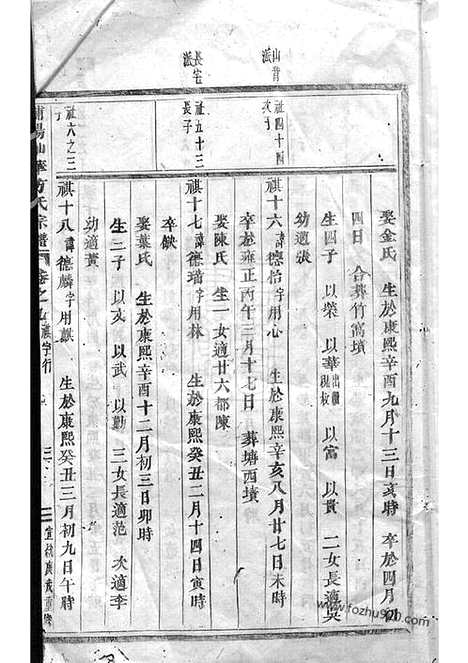 娶金氏 生於康熙辛酉九月十三日亥時 卒於四月初
四日 合葬竹窩墳
生四子 以榮 以華出繼 以富 以貴 二女長適吳
幼適張
山背派
祉四十四次子
祺十六諱德怡字用心 生於康熙辛亥八月廿七日未時
卒於雍正丙午三月十七日 葬塘西墳
娶陳氏 生一女適廿六都陳
長宅派
祉五十三長子
祺十七諱德瑨字用林 生於康熙癸丑二月十四日寅時
卒缺
娶葉氏 生於康熙辛酉十二月初三日卯時
生三子 以文 以武 以勳 三女長適范 次適李
幼適黃
祉六之三子
祺十八諱德麟字用麒 生於康熙癸丑三月初九日午時
方氏宗譜 卷之九 祺字行 宣統庚戌重修
www.fozhu920.com